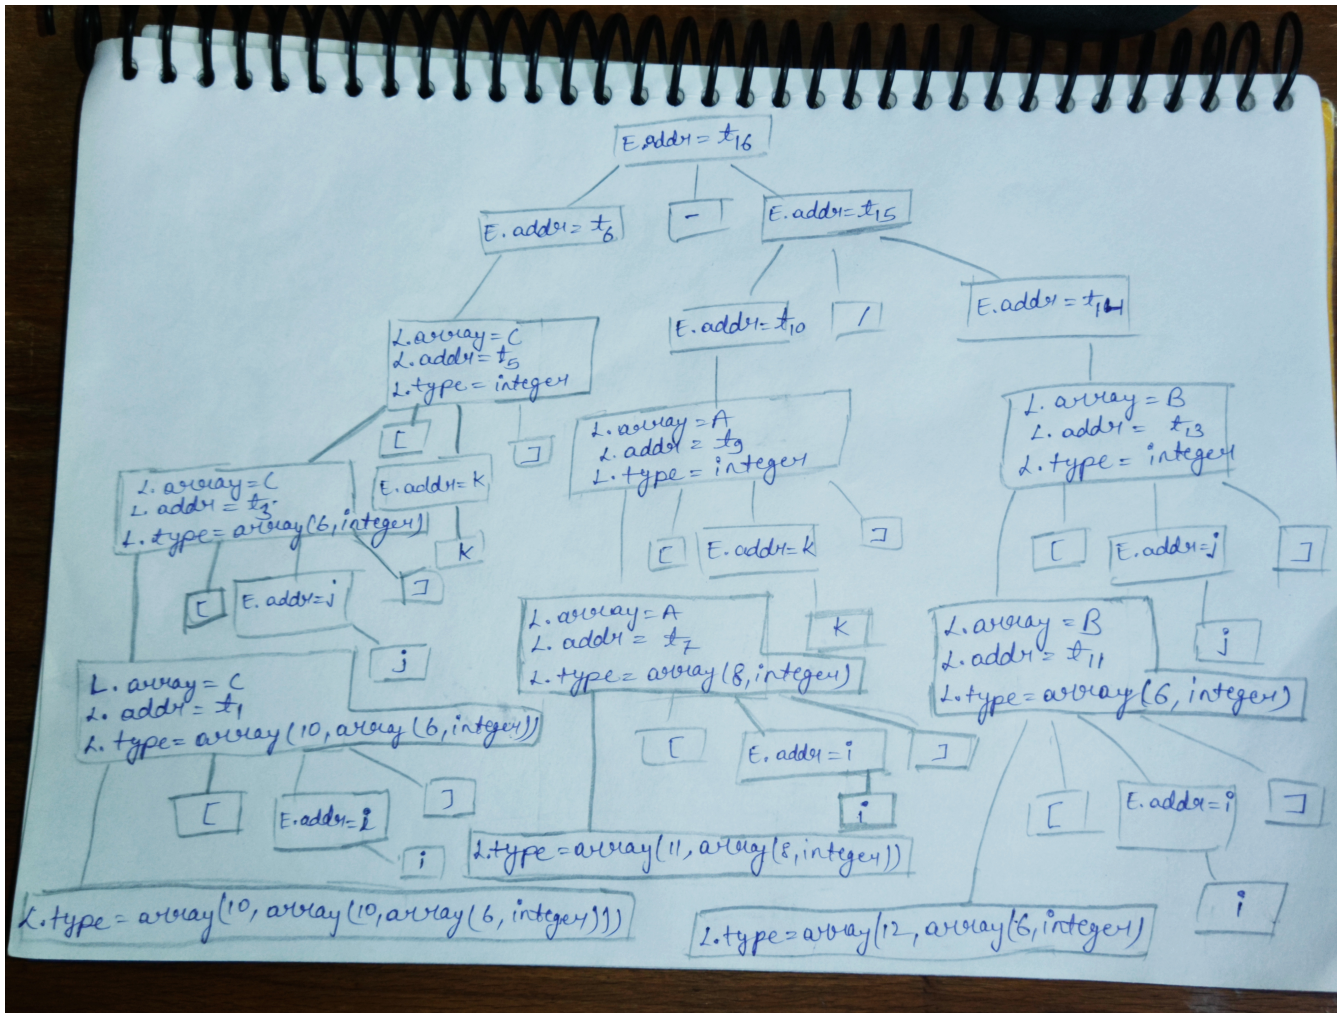 E.addr = t16
E.addr = t6
-
E.addr = t15
L.array = C
L.addr = t5
L.type = integer
E.addr = t10
/
E.addr = t14
[
]
L.array = A
L.addr = t9
L.type = integer
L.array = B
L.addr = t13
L.type = integer
L.array = C
L.addr = t3
L.type = array(6,integer)
E.addr = k
k
[
E.addr = k
]
[
E.addr = j
]
[
E.addr = j
]
j
L.array = A
L.addr = t7
L.type = array(8,integer)
k
L.array = B
L.addr = t11
L.type = array(6,integer)
j
L.array = C
L.addr = t1
L.type = array(10,array(6,integer))
[
E.addr = i
]
i
[
E.addr = i
]
i
[
E.addr = i
]
i
L.type = array(11,array(8,integer))
L.type = array(10,array(10,array(6,integer)))
L.type = array(12,array(6,integer)